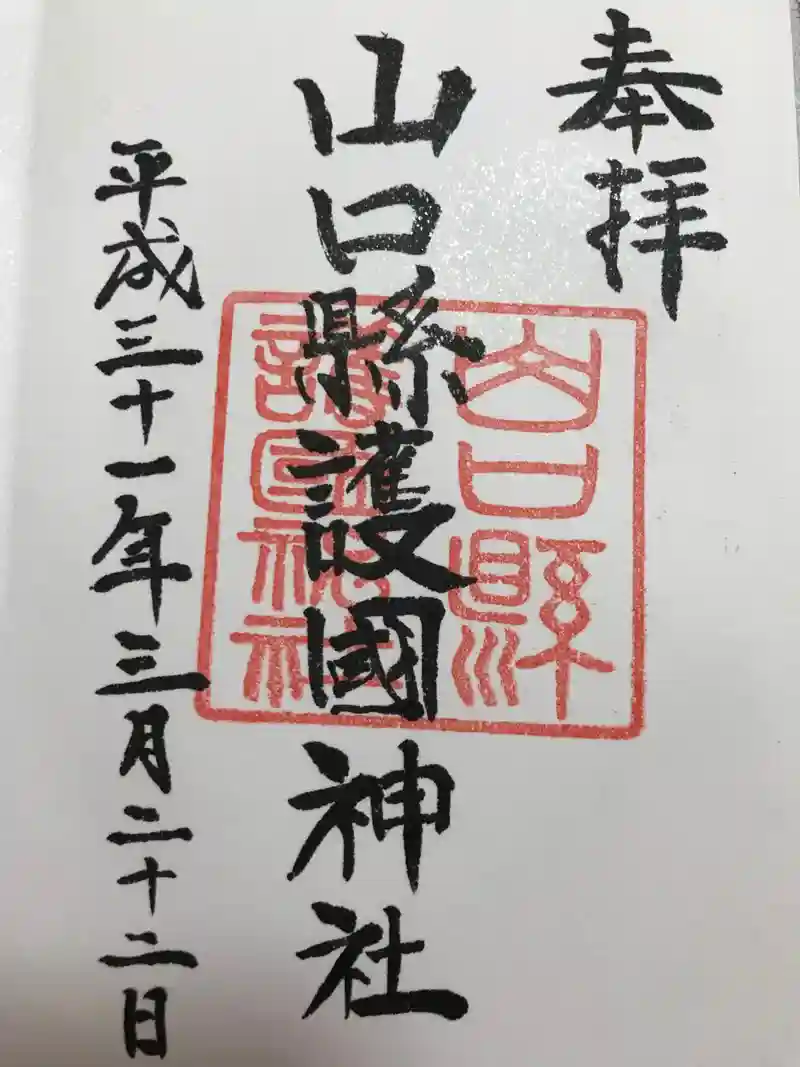 奉拝
山口縣護國神社
山口縣
護國神社
平成三十一年三月二十二日